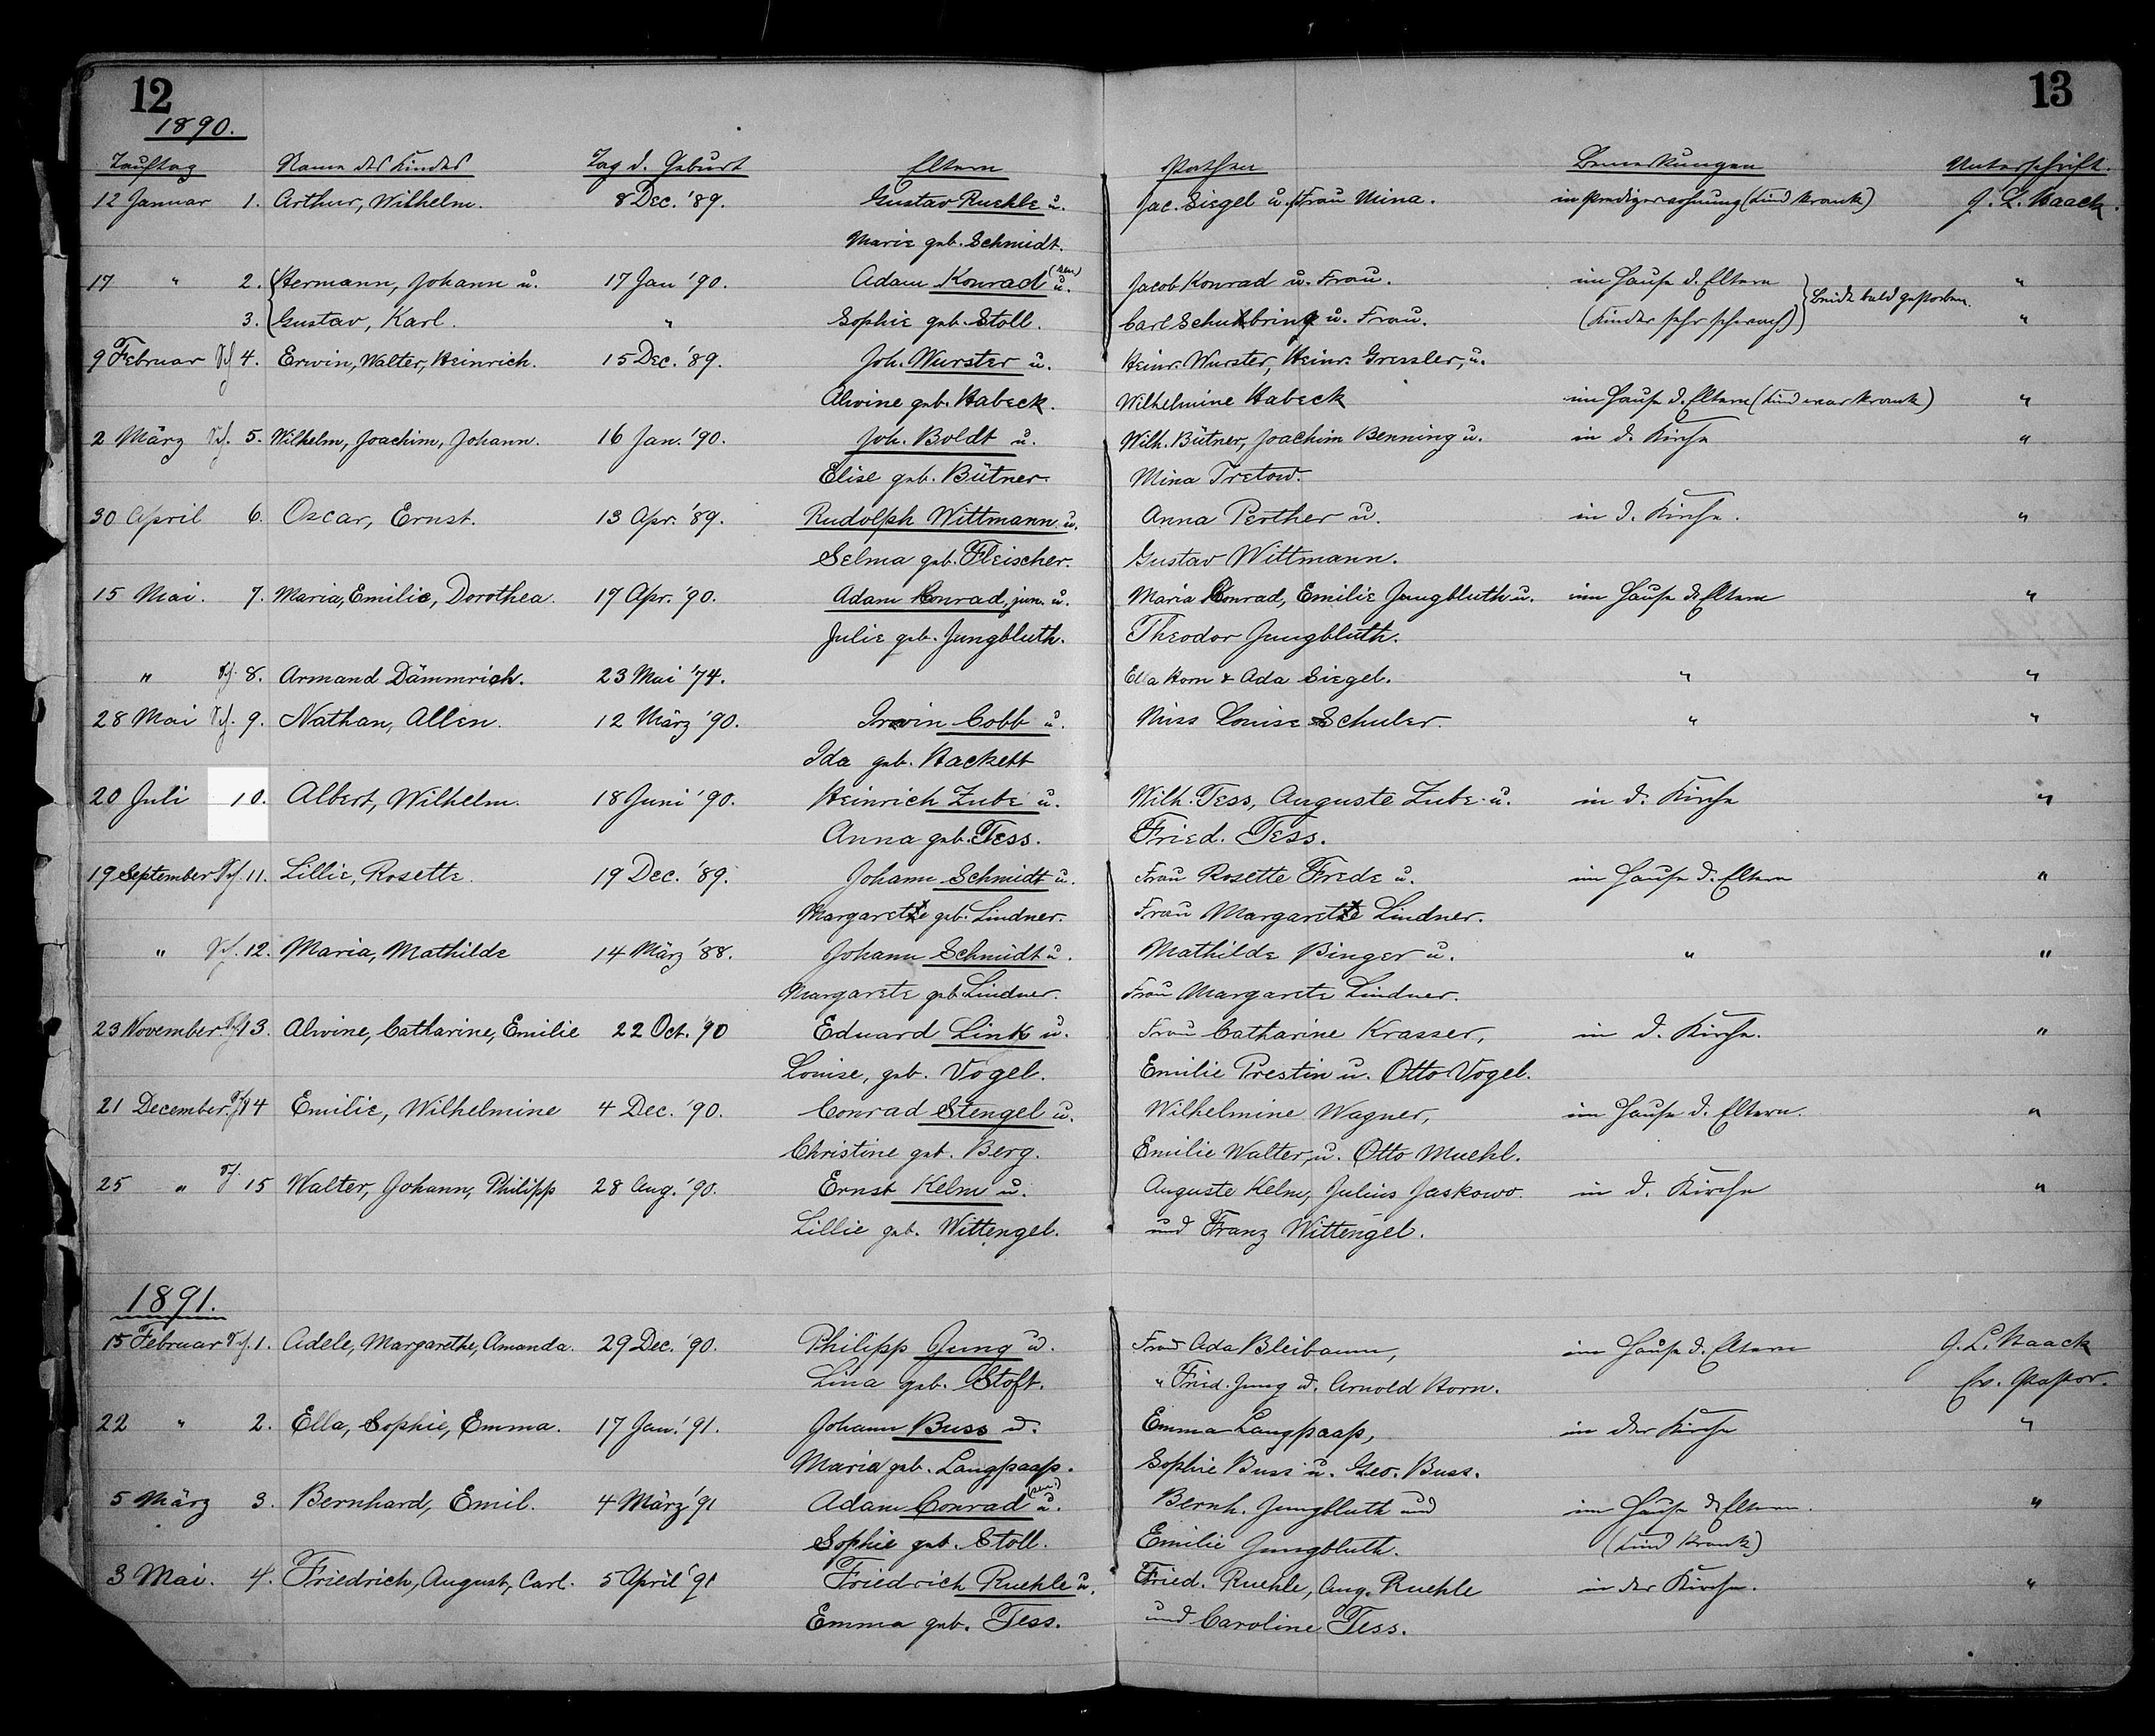 12
13
1890.
Tauftag Name des Kindes Tag d. Geburt Eltern Pathen Bemerkungen Unterschrift.
12 Januar 1. Arthur, Wilhelm. 8 Dec. '89. Gustav Ruehle u. Jac. Siegel u. Frau Mina. in Predigerwohnung (Kind krank) J. L. Haack.
Marie geb. Schmidt.
17 " 2. Hermann, Johann u. 17 Jan '90. Adam Konrad (sen) u. Jacob Konrad u. Frau. im Hause d. Eltern "
3. Gustav, Karl. " Sophie geb. Stoll. Carl Schuhbring u. Frau. (Kinder sehr schwach) beide bald gestorben. "
9 Februar 4. Erwin, Walter, Heinrich. 15 Dec. '89. Joh. Wurster u. Heinr. Wurster, Heinr. Gressler, u.
Alwine geb. Habeck. Wilhelmine Habeck im Hause d. Eltern (Kind war krank) "
2 März 5. Wilhelm, Joachim, Johann. 16 Jan. '90. Joh. Boldt u. Wilh. Bütner, Joachim Benning u. in d. Kirche "
Elise geb. Bütner. Mina Tretow.
30 April 6. Oscar, Ernst. 13 Apr. '89. Rudolph Wittmann u. Anna Perther u. in d. Kirche. "
Selma geb. Fleischer. Gustav Wittmann.
15 Mai. 7. Maria, Emilie, Dorothea. 17 Apr. '90. Adam Konrad, jun. u. Maria Conrad, Emilie Jungbluth u. im Hause d. Eltern "
Julie geb. Jungbluth. Theodor Jungbluth.
" 8. Armand Dämmrich. 23 Mai '74. Ella Horn & Ada Siegel. " "
28 Mai 9. Nathan, Allen. 12 März '90. Irwin Cobb u. Miss Louise Schuler. " "
Ida geb. Hackett
20 Juli 10. Albert, Wilhelm. 18 Juni '90. Heinrich Zube u. Wilh. Tess, Auguste Zube u. in d. Kirche "
Anna geb. Tess. Fried. Tess.
19 September 11. Lillie, Rosette. 19 Dec. '89. Johann Schmidt u. Frau Rosette Frede u. im Hause d. Eltern "
Margarete geb. Lindner. Frau Margarete Lindner.
" 12. Maria, Mathilde 14 März '88. Johann Schmidt u. Mathilde Binger u. " "
Margarete geb. Lindner. Frau Margarete Lindner.
23 November 13. Alwine, Catharine, Emilie 22 Oct. '90 Eduard Link u. Frau Catharine Krasser, in d. Kirche. "
Louise, geb. Vogel. Emilie Prestin u. Otto Vogel.
21 December. 14 Emilie, Wilhelmine 4 Dec. '90. Conrad Stengel u. Wilhelmine Wagner, im Hause d. Eltern. "
Christine geb. Berg. Emilie Walter, u. Otto Muehl.
25 " 15 Walter, Johann, Philipp 28 Aug. '90. Ernst Kelm u. Auguste Kelm, Julius Jaskowo. in d. Kirche "
Lillie geb. Wittengel. und Franz Wittengel.
1891.
15 Februar 1. Adele, Margarethe, Amanda. 29 Dec. '90. Philipp Jung u. Frau Ada Bleibaum, im Hause d. Eltern J. L. Haack
Lina geb. Stoft. " Fried. Jung u. Arnold Horn. Ev. Pastor.
22 " 2. Ella, Sophie, Emma. 17 Jan. '91. Johann Buss u. Emma Langpaap, in der Kirche "
Maria geb. Langpaap. Sophie Buss u. Geo. Buss.
5 März 3. Bernhard, Emil. 4 März '91 Adam Conrad (sen.) u. Bernh. Jungbluth und im Hause d. Eltern. "
Sophie geb. Stoll. Emilie Jungbluth. (Kind krank)
3 Mai. 4. Friedrich, August, Carl. 5 April '91 Friedrich Ruehle u. Fried. Ruehle, Aug. Ruehle in der Kirche. "
Emma geb. Tess. und Caroline Tess.